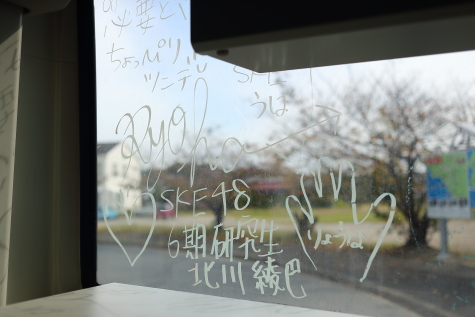 必要と、
ちょっぴり
ツンデレ
うは
Ryoha
SKE48
6期研究生
北川綾巴
りょうは